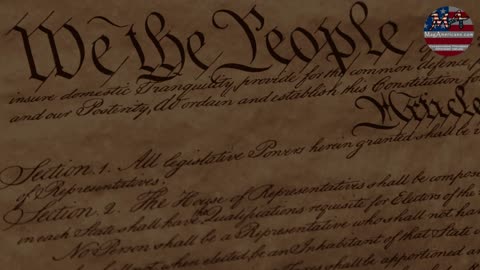 We the People
insure domestic Tranquility, provide for the common defence,
and our Posterity, do ordain and establish this Constitution for
Article
Section 1. All legislative Powers herein granted shall be
of Representatives.
Section 2. The House of Representatives shall be compos
in each State shall have the Qualifications requisite for Electors of the
No Person shall be a Representative who shall not ha
shall not, when elected, be an Inhabitant of that State
shall be apportioned a
MagAmericans.com